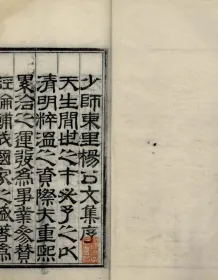 少師東里楊公文集序
天生間世之才必予之以
清明粹溫之資際大重熙
累洽之運發為事業參贊
經綸輔成國家之盛著為